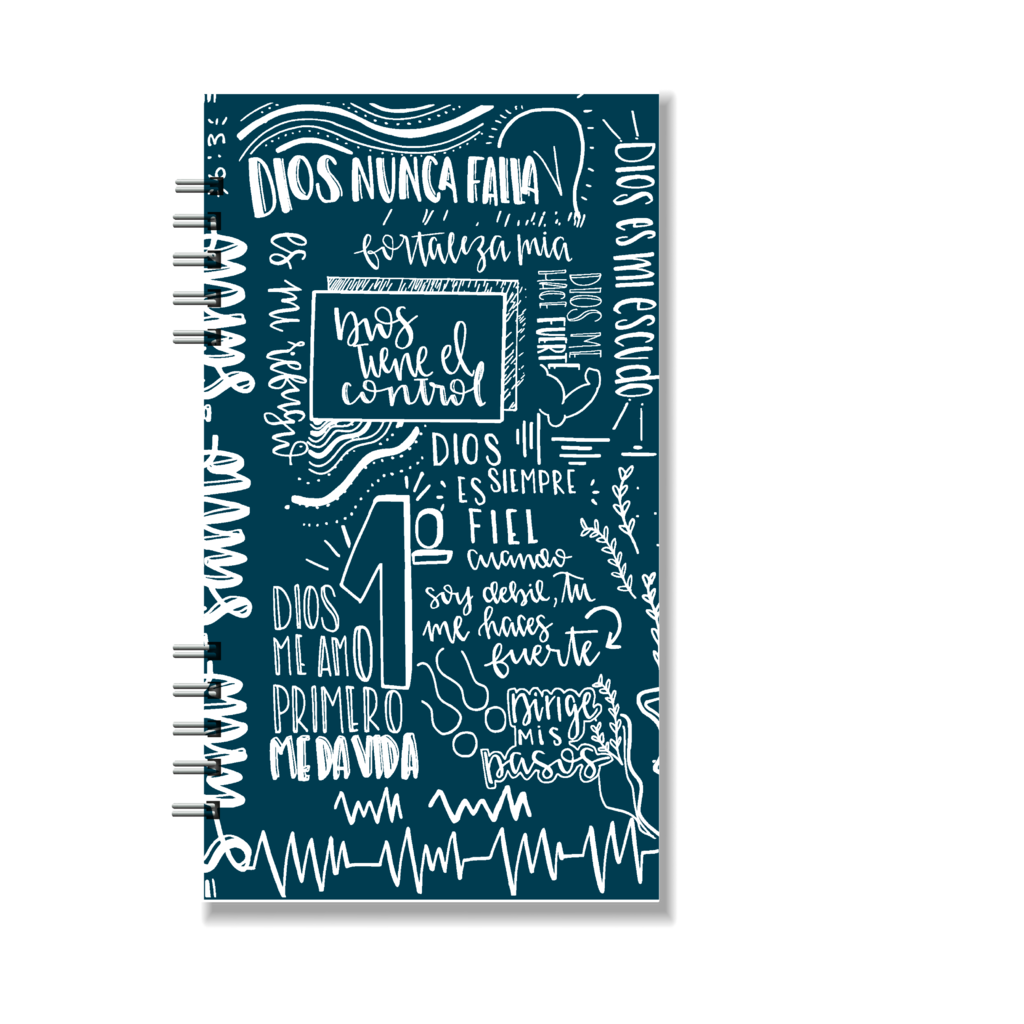 6:3
DIOS NUNCA FALLA
fortaleza mia
DIOS es mi escudo
es mi refugio
DIOS ME
HACE FUERTE
Dios
tiene el
control
DIOS
ES SIEMPRE
FIEL
1º
cuando
soy debil, tu
me haces
fuerte
DIOS
ME AMO
PRIMERO
ME DA VIDA
Dirige
MIS
pasos